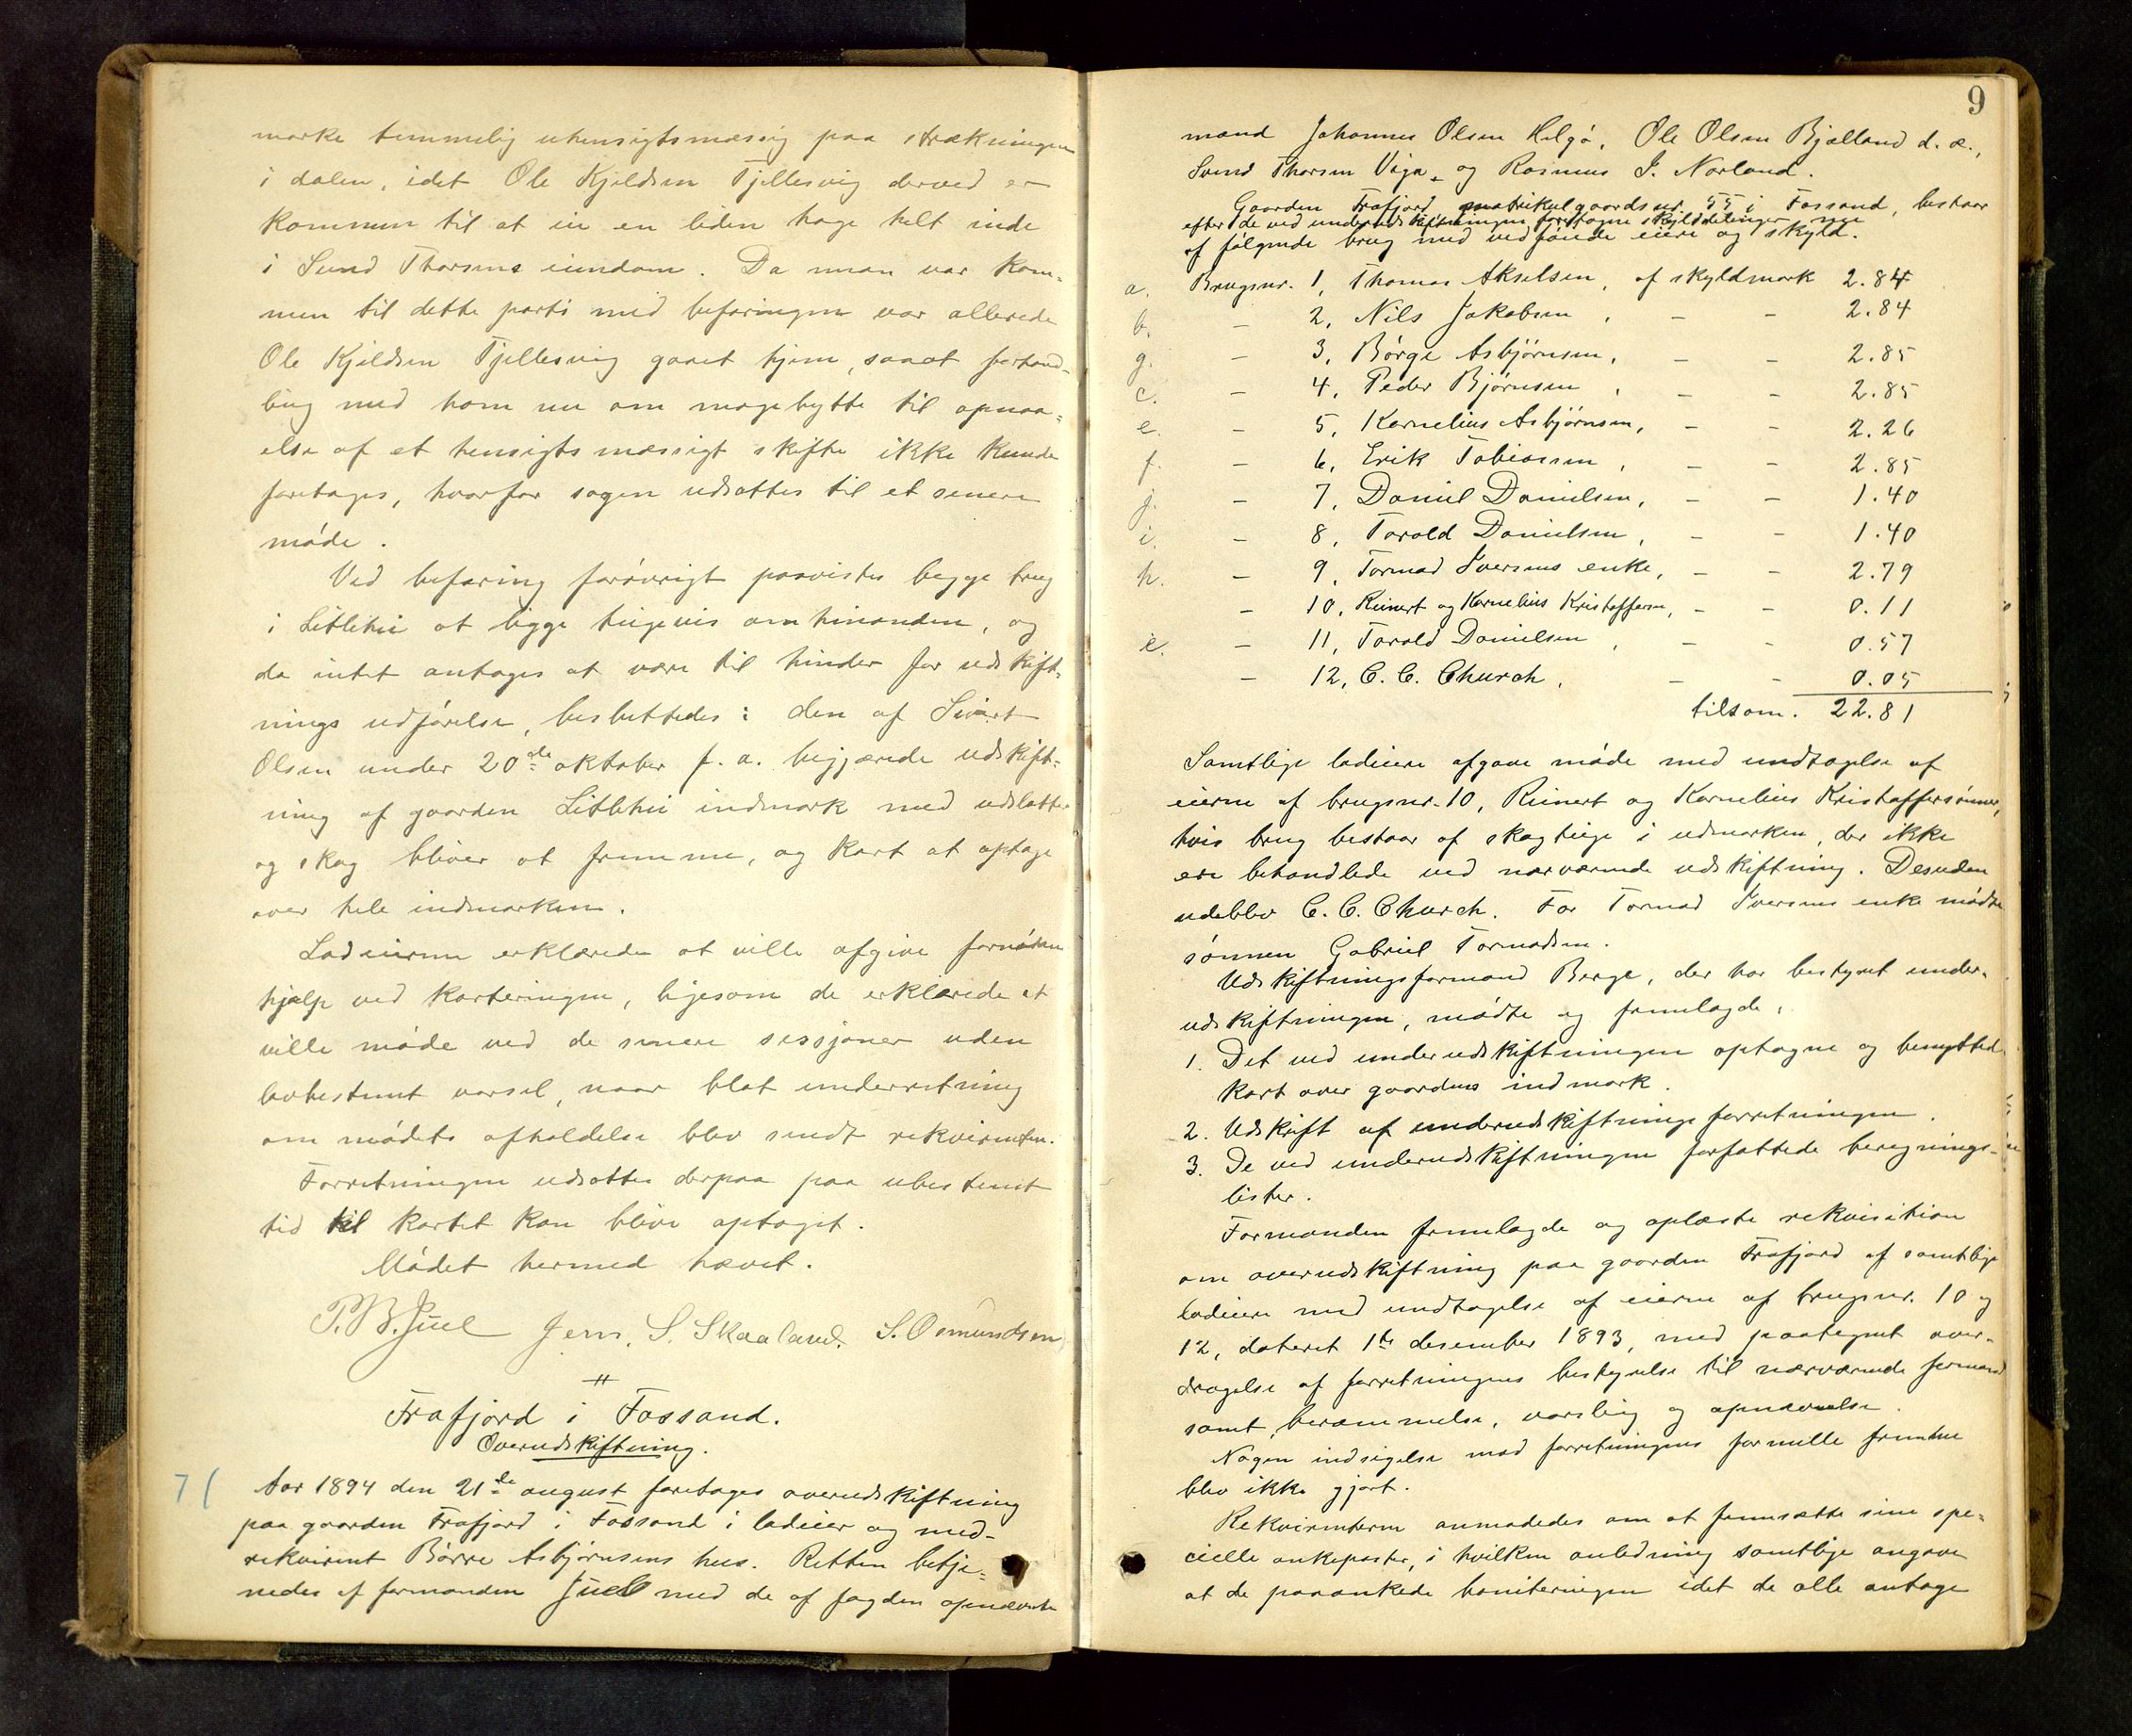 marke temmelig uhensigtsmæssig paa strækningen
i dalen, idet Ole Kjeldsen Tjellesvig derved er
kommen til at eie en liden hage helt inde
i Svend Thorsens eiendom. Da man var kom-
men til dette parti med befaringen var allerede
Ole Kjeldsen Tjellesvig gaaet hjem, saaat forhand-
ling med ham nu om magebytte til opnaa-
else af et hensigtsmæssigt skifte ikke kunde
foretages, hvorfor sagen udsattes til et senere
møde.
Ved befaring forøvrigt paavistes begge brug
i Litlehei at ligge teigevis om hinanden, og
da intet antages at være til hinder for udskift-
nings udførelse, besluttedes: den af Sivert
Olsen under 20de oktober f. a. begjærede udskift-
ning af gaarden Litlehei indmark med udslatter
og skog bliver at fremme, og kart at optage
over hele indmarken.
Lodeierne erklærede at ville afgive fornøden
hjælp ved karteringen, ligesom de erklærede at
ville møde ved de senere sessjoner uden
lovbestemt varsel, naar blot underretning
om mødets afholdelse blev sendt rekvirenten.
Forretningen udsattes derpaa paa ubestemt
tid til kartet kan blive optaget.
Mødet hermed hævet.
P. B. Juel Jens. S. Skaaland. S. Osmundsen
"
Frafjord i Fossand.
Overudskiftning.
7 (
Aar 1894 den 21de august foretages overudskiftning
paa gaarden Frafjord i Fossand i lodeier og med-
rekvirent Børre Asbjørnsens hus. Retten betje-
nedes af formanden Juel med de af fogden opnævnte
9
mænd Johannes Olsen Helgø, Ole Olsen Bjælland d. æ.,
Svend Thorsen Viga, og Rasmus J. Norland.
Gaarden Frafjord matrikulgaardsnr. 55 i Fossand, bestaar
efter de ved underudskiftningen foretagne skylddelinger nye
af følgende brug med vedføiede eiere og skyld.
a. Brugsnr. 1, Thomas Akselsen, af skyldmark 2.84
b. - 2, Nils Jakobsen, - - 2.84
g. - 3, Børge Asbjørnsen, - - 2.85
c. - 4, Peder Bjørnsen, - - 2.85
e. - 5, Kornelius Asbjørnsen, - - 2.26
f. - 6, Erik Tobiassen, - - 2.85
j. - 7, Daniel Danielsen, - - 1.40
i. - 8, Torald Danielsen, - - 1.40
h. - 9, Tormod Iversens enke, - - 2.79
- 10, Reinert og Kornelius Kristoffersn, - - 0.11
i. - 11, Torald Danielsen, - - 0.57
- 12, C. C. Church, - - 0.05
tilsam. 22.81
Samtlige lodeiere afgave møde med undtagelse af
eierne af brugsnr. 10, Reinert og Kornelius Kristoffersønner,
hvis brug bestaar af skogteige i udmarken, der ikke
ere behandlede ved nærværende udskiftning. Desuden
udeblev C. C. Church. For Tormod Iversens enke mødte
sønnen Gabriel Tormodsen.
Udskiftningsformand Berge, der har bestyret under-
udskiftningen, mødte og fremlagde:
1. Det ved underudskiftningen optagne og benyttede
kart over gaardens indmark.
2. Udskrift af underudskiftnings forretningen.
3. De ved underudskiftningen forfattede beregnings-
lister.
Formanden fremlagde og oplæste rekvisition
om overudskiftning paa gaarden Frafjord af samtlige
lodeiere med undtagelse af eierne af brugsnr. 10 og
12, dateret 1ste desember 1893, med paategnet over-
dragelse af forretningens bestyrelse til nærværende formand
samt, berammelse, varsling og opnævnelse.
Nogen indsigelse mod forretningens formelle fremme
blev ikke gjort.
Rekvirenterne anmodedes om at fremsætte sine spe-
cielle ankeposter, i hvilken anledning samtlige angave
at de paaankede boniteringen idet de alle antage